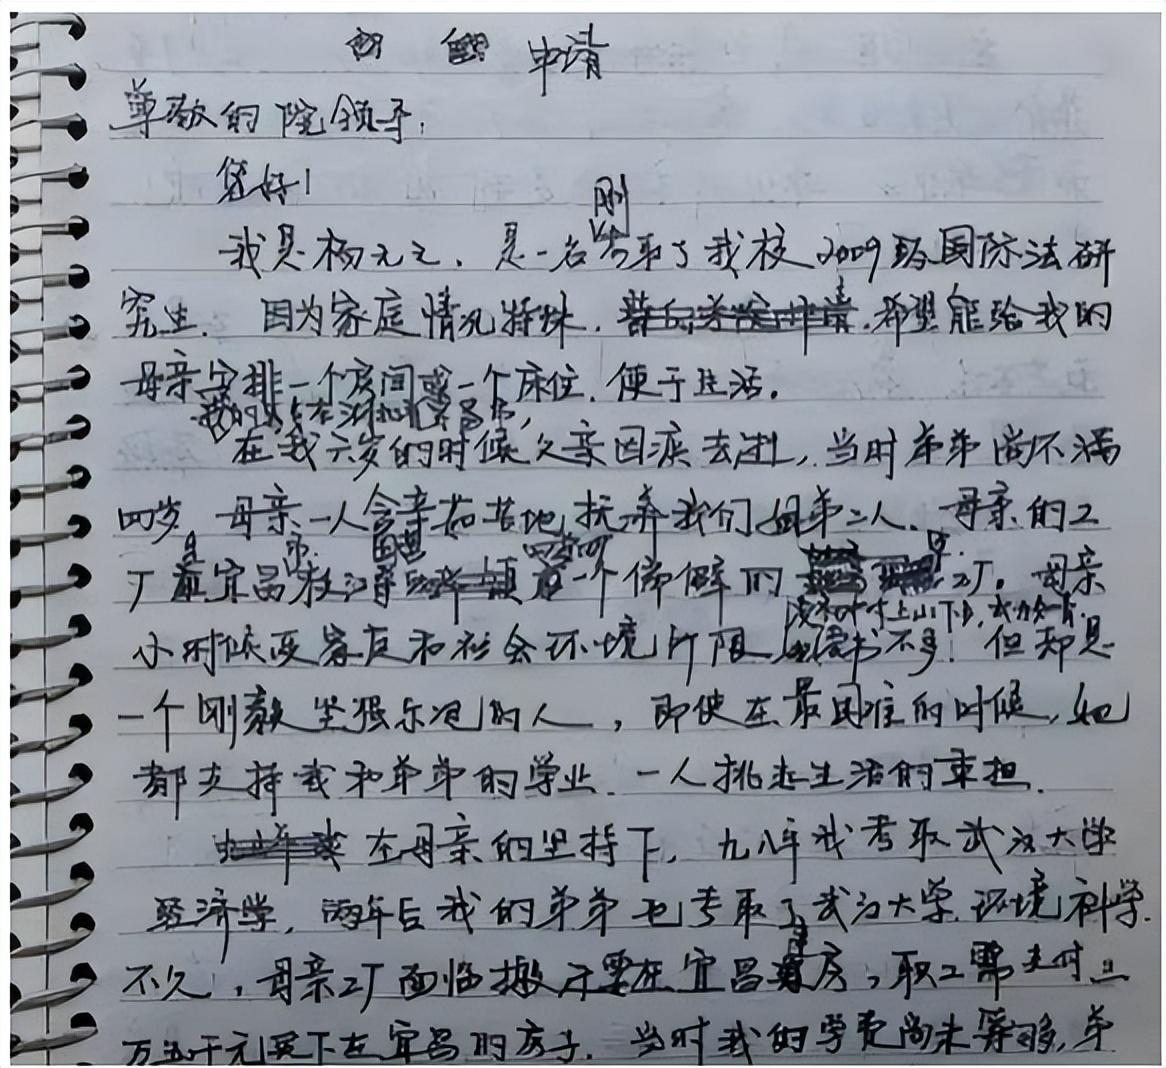 申请
尊敬的院领导:
您好!
刚
我是杨元之.是一名考取了我校2009级国际法研
究生.因为家庭情况特殊.希望能给我的
母亲安排一个房间或一个床位.便于生活.
我的家在湖北宜昌市,
在我六岁的时候父亲因疾去逝,当时弟弟尚不满
四岁 母亲一人含辛茹苦地抚养我们姐弟二人.母亲的工
厂是宜昌市枝江 一个偏僻的 工厂。母亲
小时候受家庭和社会环境所限 读书不多!但却是
一个刚毅坚强乐观的人,即使在最困难的时候,她
都支持我和弟弟的学业.一人挑起生活的重担.
在母亲的坚持下,九八年我考取武汉大学
经济学,两年后我的弟弟也考取了武汉大学环境科学.
不久,母亲工厂面临搬 要在宜昌 房,职工需支付三
万五千元买下在宜昌的房子.当时我的学费尚未筹够,弟